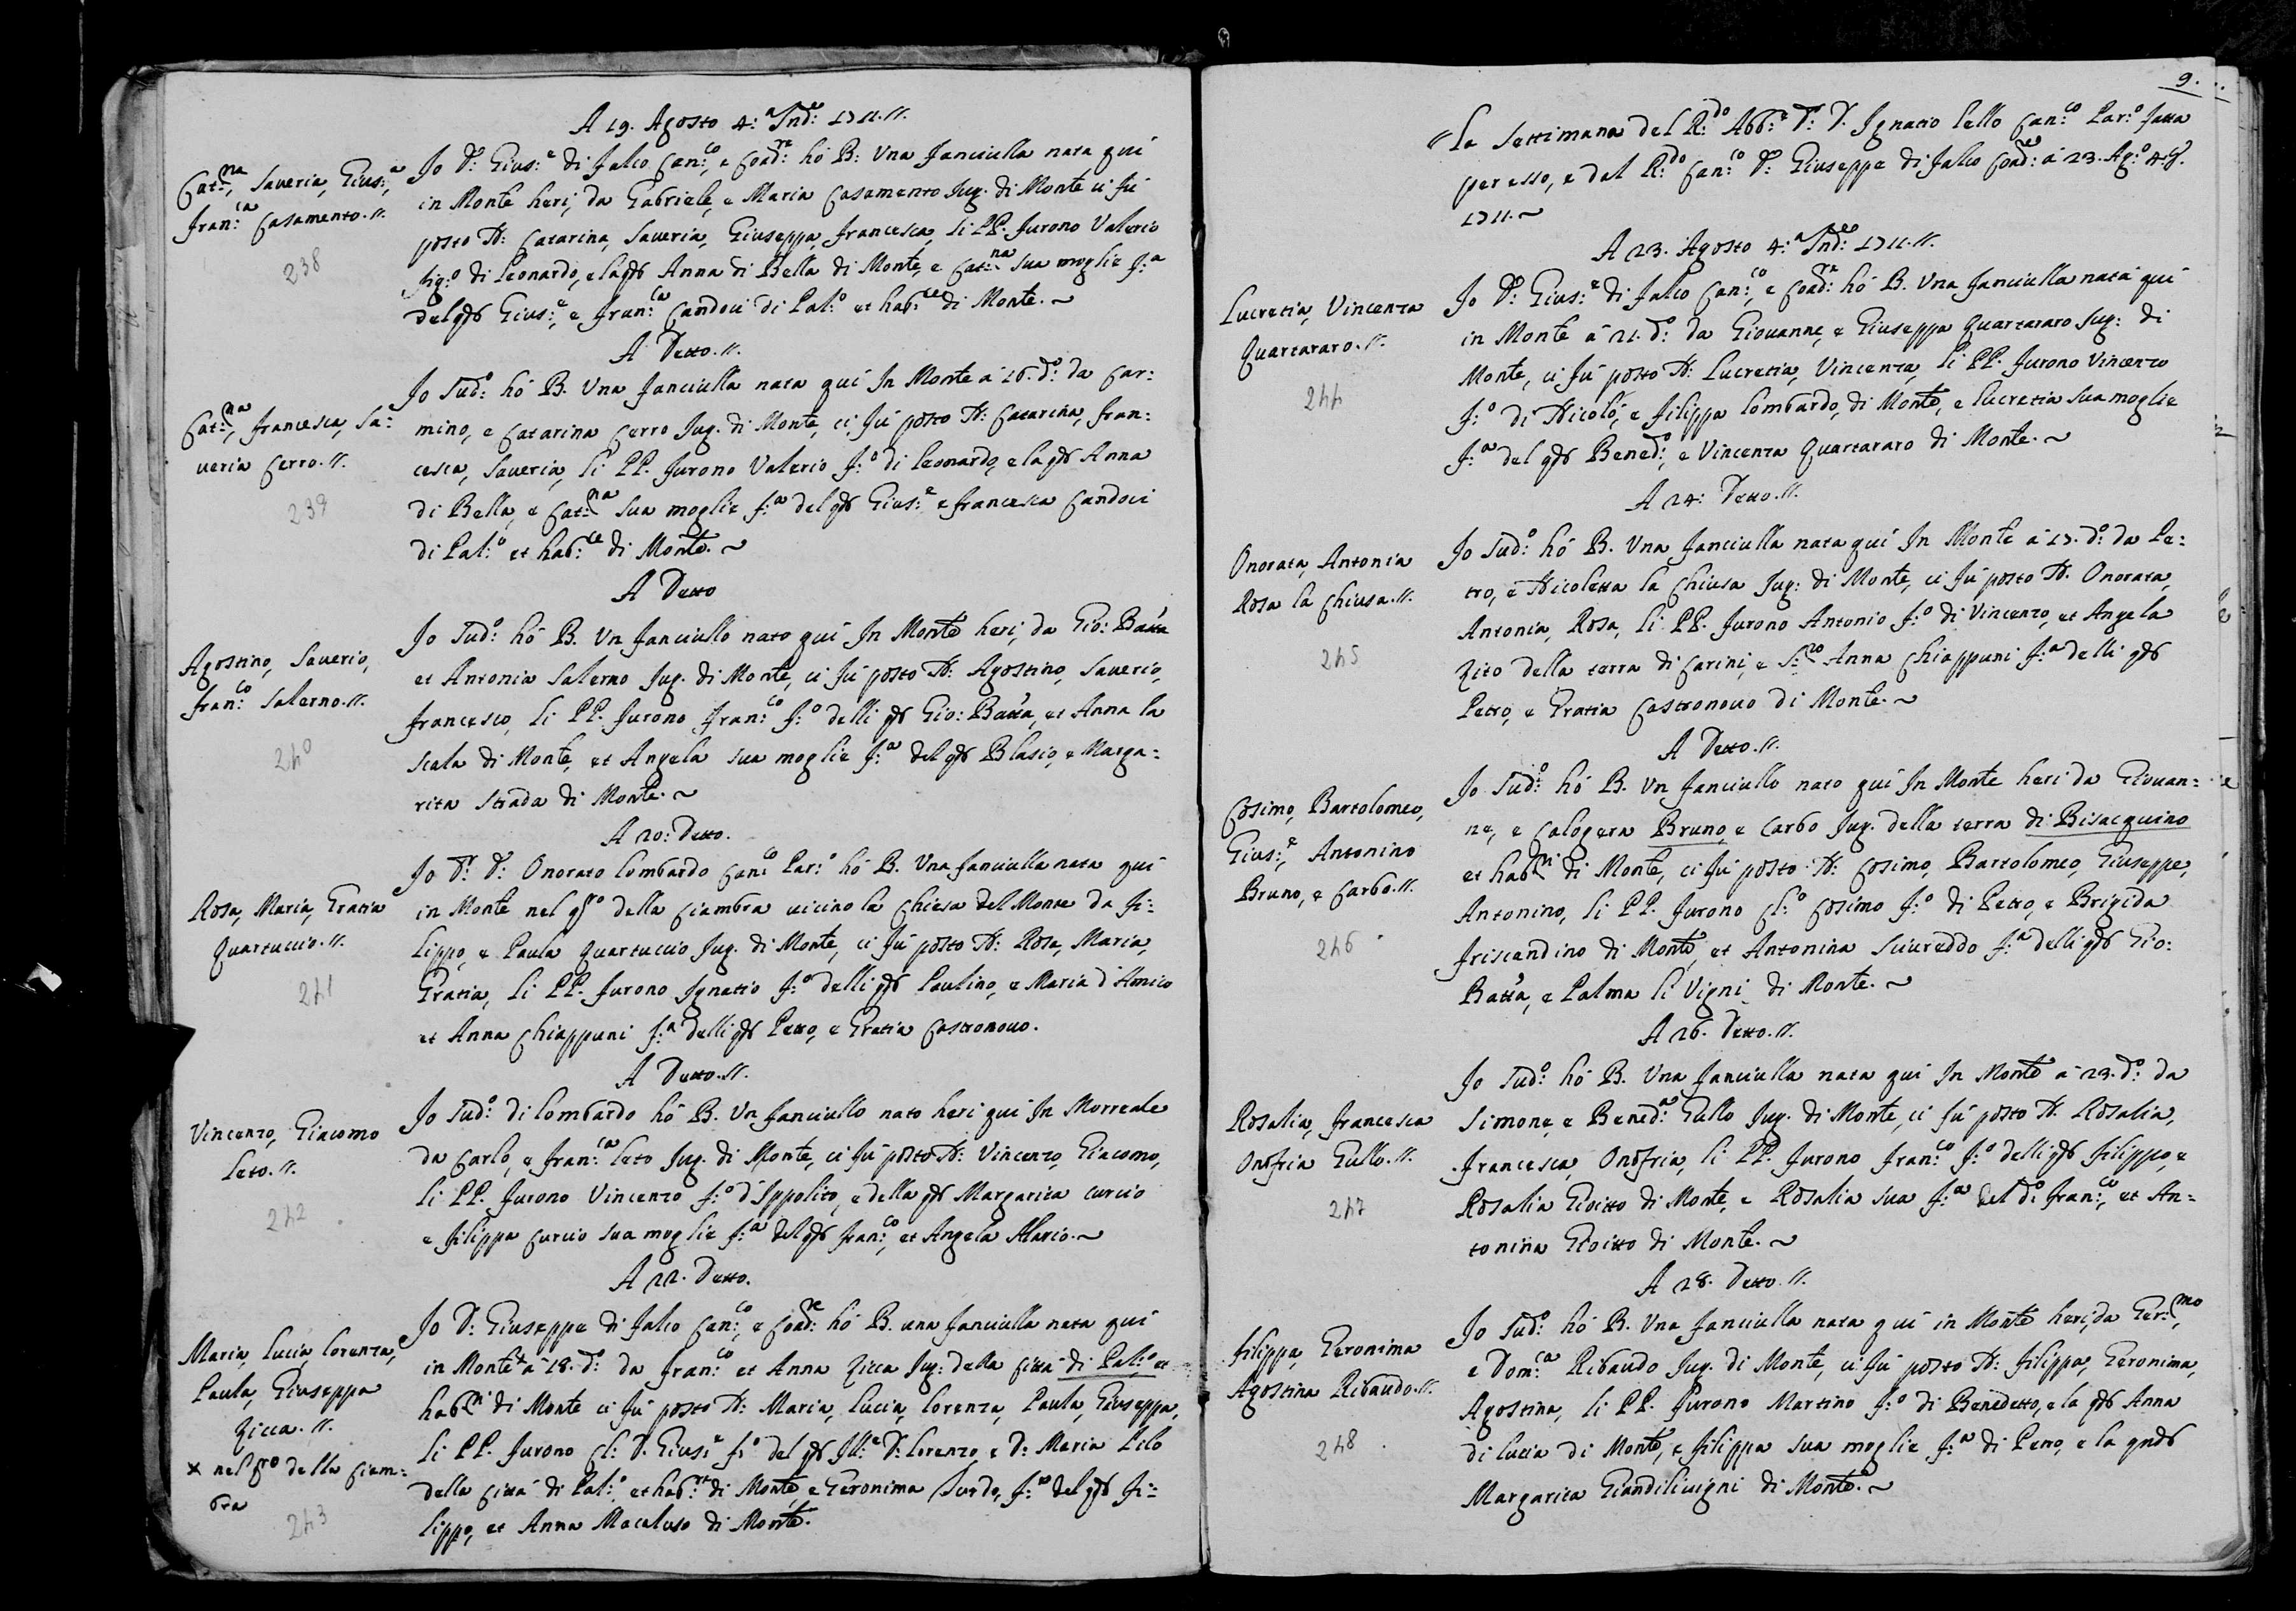 A 19. Agosto 4:a Ind:e 1711.//.
Cat:na, Saveria, Gius:a,
Fran:ca Casamento.//.
238
Io D: Gius:e di Falco Can:co, e Coad:re hò B: Una fanciulla nata quì
in Monte heri, da Gabriele, e Maria Casamento Jug. di Monte ci fù
posto N: Catarina, Saveria, Giuseppa, Francesca, li PP. furono Valerio
fig:o di Leonardo, e la qds Anna di Bella di Monte, e Cat:na sua moglie f:a
del qds Gius:e, e Fran:ca Candoci di Pal:o et hab:ce di Monte.~
A Detto.//.
Cat:na, Francesca, Sa:
veria Cerro.//.
239
Io sud:o hò B. Una fanciulla nata quì In Monte à 16. d:o da Car:
mino, e Catarina Cerro Jug. di Monte, ci fù posto N: Catarina, Fran:
cesca, Saveria, li PP. furono Valerio f:o di Leonardo, e la qds Anna
di Bella, e Cat:na sua moglie f:a del qds Gius:e e Francesca Candoci
di Pal:o et hab:ce di Monte.~
A Detto
Agostino, Saverio,
Fran:co Salerno.//.
240
Io sud:o hò B. Un fanciullo nato quì In Monte heri, da Gio: Batta
et Antonia Salerno Jug. di Monte, ci fù posto N: Agostino, Saverio,
Francesco, li PP. furono Fran:co f:o delli qds Gio: Batta, et Anna la
Scala di Monte, et Angela sua moglie f:a del qds Blasio, e Marga:
rita Strada di Monte.~
A 20: Detto.
Rosa, Maria, Gratia
Quartuccio.//.
241
Io D:r D: Onorato Lombardo Can:co Par:o hò B. Una fanciulla nata quì
in Monte nel qro della Ciambra vicino la Chiesa del Monte da Fi:
lippo, e Paula Quartuccio Jug. di Monte, ci fù posto N: Rosa, Maria,
Gratia, li PP. furono Ignatio f:o delli qds Paulino, e Maria d'Amico
et Anna Chiappuni f:a delli qds Petro, e Gratia Castronovo.
A Detto.//.
Vincenzo, Giacomo
Leto.//.
242
Io sud:o di Lombardo hò B. Un fanciullo nato heri quì In Morreale
da Carlo, e Fran:ca Leto Jug. di Monte, ci fù posto N: Vincenzo, Giacomo,
li PP. furono Vincenzo f:o d'Ippolito, e della qds Margarita Curcio
e Filippa Curcio sua moglie f:a del qds Fran:co, et Angela Alario.~
A 22. Detto.
Maria, Lucia, Lorenza,
Paula, Giuseppa
Zicca.//.
x nel qro della Ciam:
bra
243
Io D: Giuseppe di Falco Can:co, e Coad:re hò B. una fanciulla nata quì
in Monte x à 18. d:o da Fran:co et Anna Zicca Jug. della Città di Pal:o et
hab:ni di Monte ci fù posto N: Maria, Lucia, Lorenza, Paula, Giuseppa,
li PP. furono Cl: D. Gius:e f:o del qds Ill:e D: Lorenzo, e D: Maria Lilo
della Città di Pal:o et hab:re di Monte, e Geronima Surdo, f:a del qds Fi:
lippo, et Anna Macaluso di Monte.
9.
//La Settimana del R:do Abb:e D:r D. Ignatio Lello Can:co Par:o fatta
per esso, e dal R:do Can:co D: Giuseppe di Falco Coad:re à 23. Ag:o 4:e I.
1711.~
A 23. Agosto 4:a Ind:e 1711.//.
Lucretia, Vincenza
Quartararo.//.
244
Io D: Gius:e di Falco Can:co, e Coad:re hò B. Una fanciulla nata quì
in Monte à 21. d:o da Giovanne, e Giuseppa Quartararo Jug: di
Monte, ci fù posto N: Lucretia, Vincenza, li PP. furono Vincenzo
f:o di Nicolò, e Filippa Lombardo, di Monte, e Lucretia sua moglie
f:a del qds Bened:o, e Vincenza Quartararo di Monte.~
A 24: Detto.//.
Onorata, Antonia
Rosa la Chiusa.//.
245
Io sud:o hò B. Una fanciulla nata quì In Monte à 17. d:o da Pe:
tro, e Nicoletta la Chiusa Jug: di Monte, ci fù posto N. Onorata,
Antonia, Rosa, li PP. furono Antonio f:o di Vincenzo, et Angela
Zito della terra di Carini, e Anna Chiappuni f:a delli qds
Petro, e Gratia Castronovo di Monte.~
A Detto.//.
Cosimo, Bartolomeo,
Gius:e, Antonino
Bruno, e Carbo.//.
246
Io sud:o hò B. Un fanciullo nato quì In Monte heri da Giovan:
ne, e Calogera Bruno, e Carbo Jug. della terra di Bisacquino
et hab:ni di Monte, ci fù posto N: Cosimo, Bartolomeo, Giuseppe,
Antonino, li PP. furono Cl:o Cosimo f:o di Petro, e Brigida
Friscandino di Monte, et Antonina Sciureddo f:a delli qds Gio:
Batta, e Palma li Vigni di Monte.~
A 26. Detto.//.
Rosalia, Francesca
Onofria Gullo.//.
247
Io sud:o hò B. Una fanciulla nata quì In Monte à 23. d:o da
Simone, e Bened:a Gullo Jug. di Monte, ci fù posto N. Rosalia,
Francesca, Onofria, li PP. furono Fran:co f:o delli qds Filippo, e
Rosalia Gioitto di Monte, e Rosalia sua f:a del d:o Fran:co, et An:
tonina Gioitto di Monte.~
A 28. Detto.//.
Filippa, Geronima
Agostina Ribaudo.//.
248
Io sud:o hò B. Una fanciulla nata quì in Monte heri, da Ger:mo,
e Dom:ca Ribaudo Jug. di Monte, ci fù posto N: Filippa, Geronima,
Agostina, li PP. furono Martino f:o di Benedetto, e la qds Anna
di Lucia di Monte, e Filippa sua moglie f:a di Petro, e la qnds
Margarita Giandilivigni di Monte.~